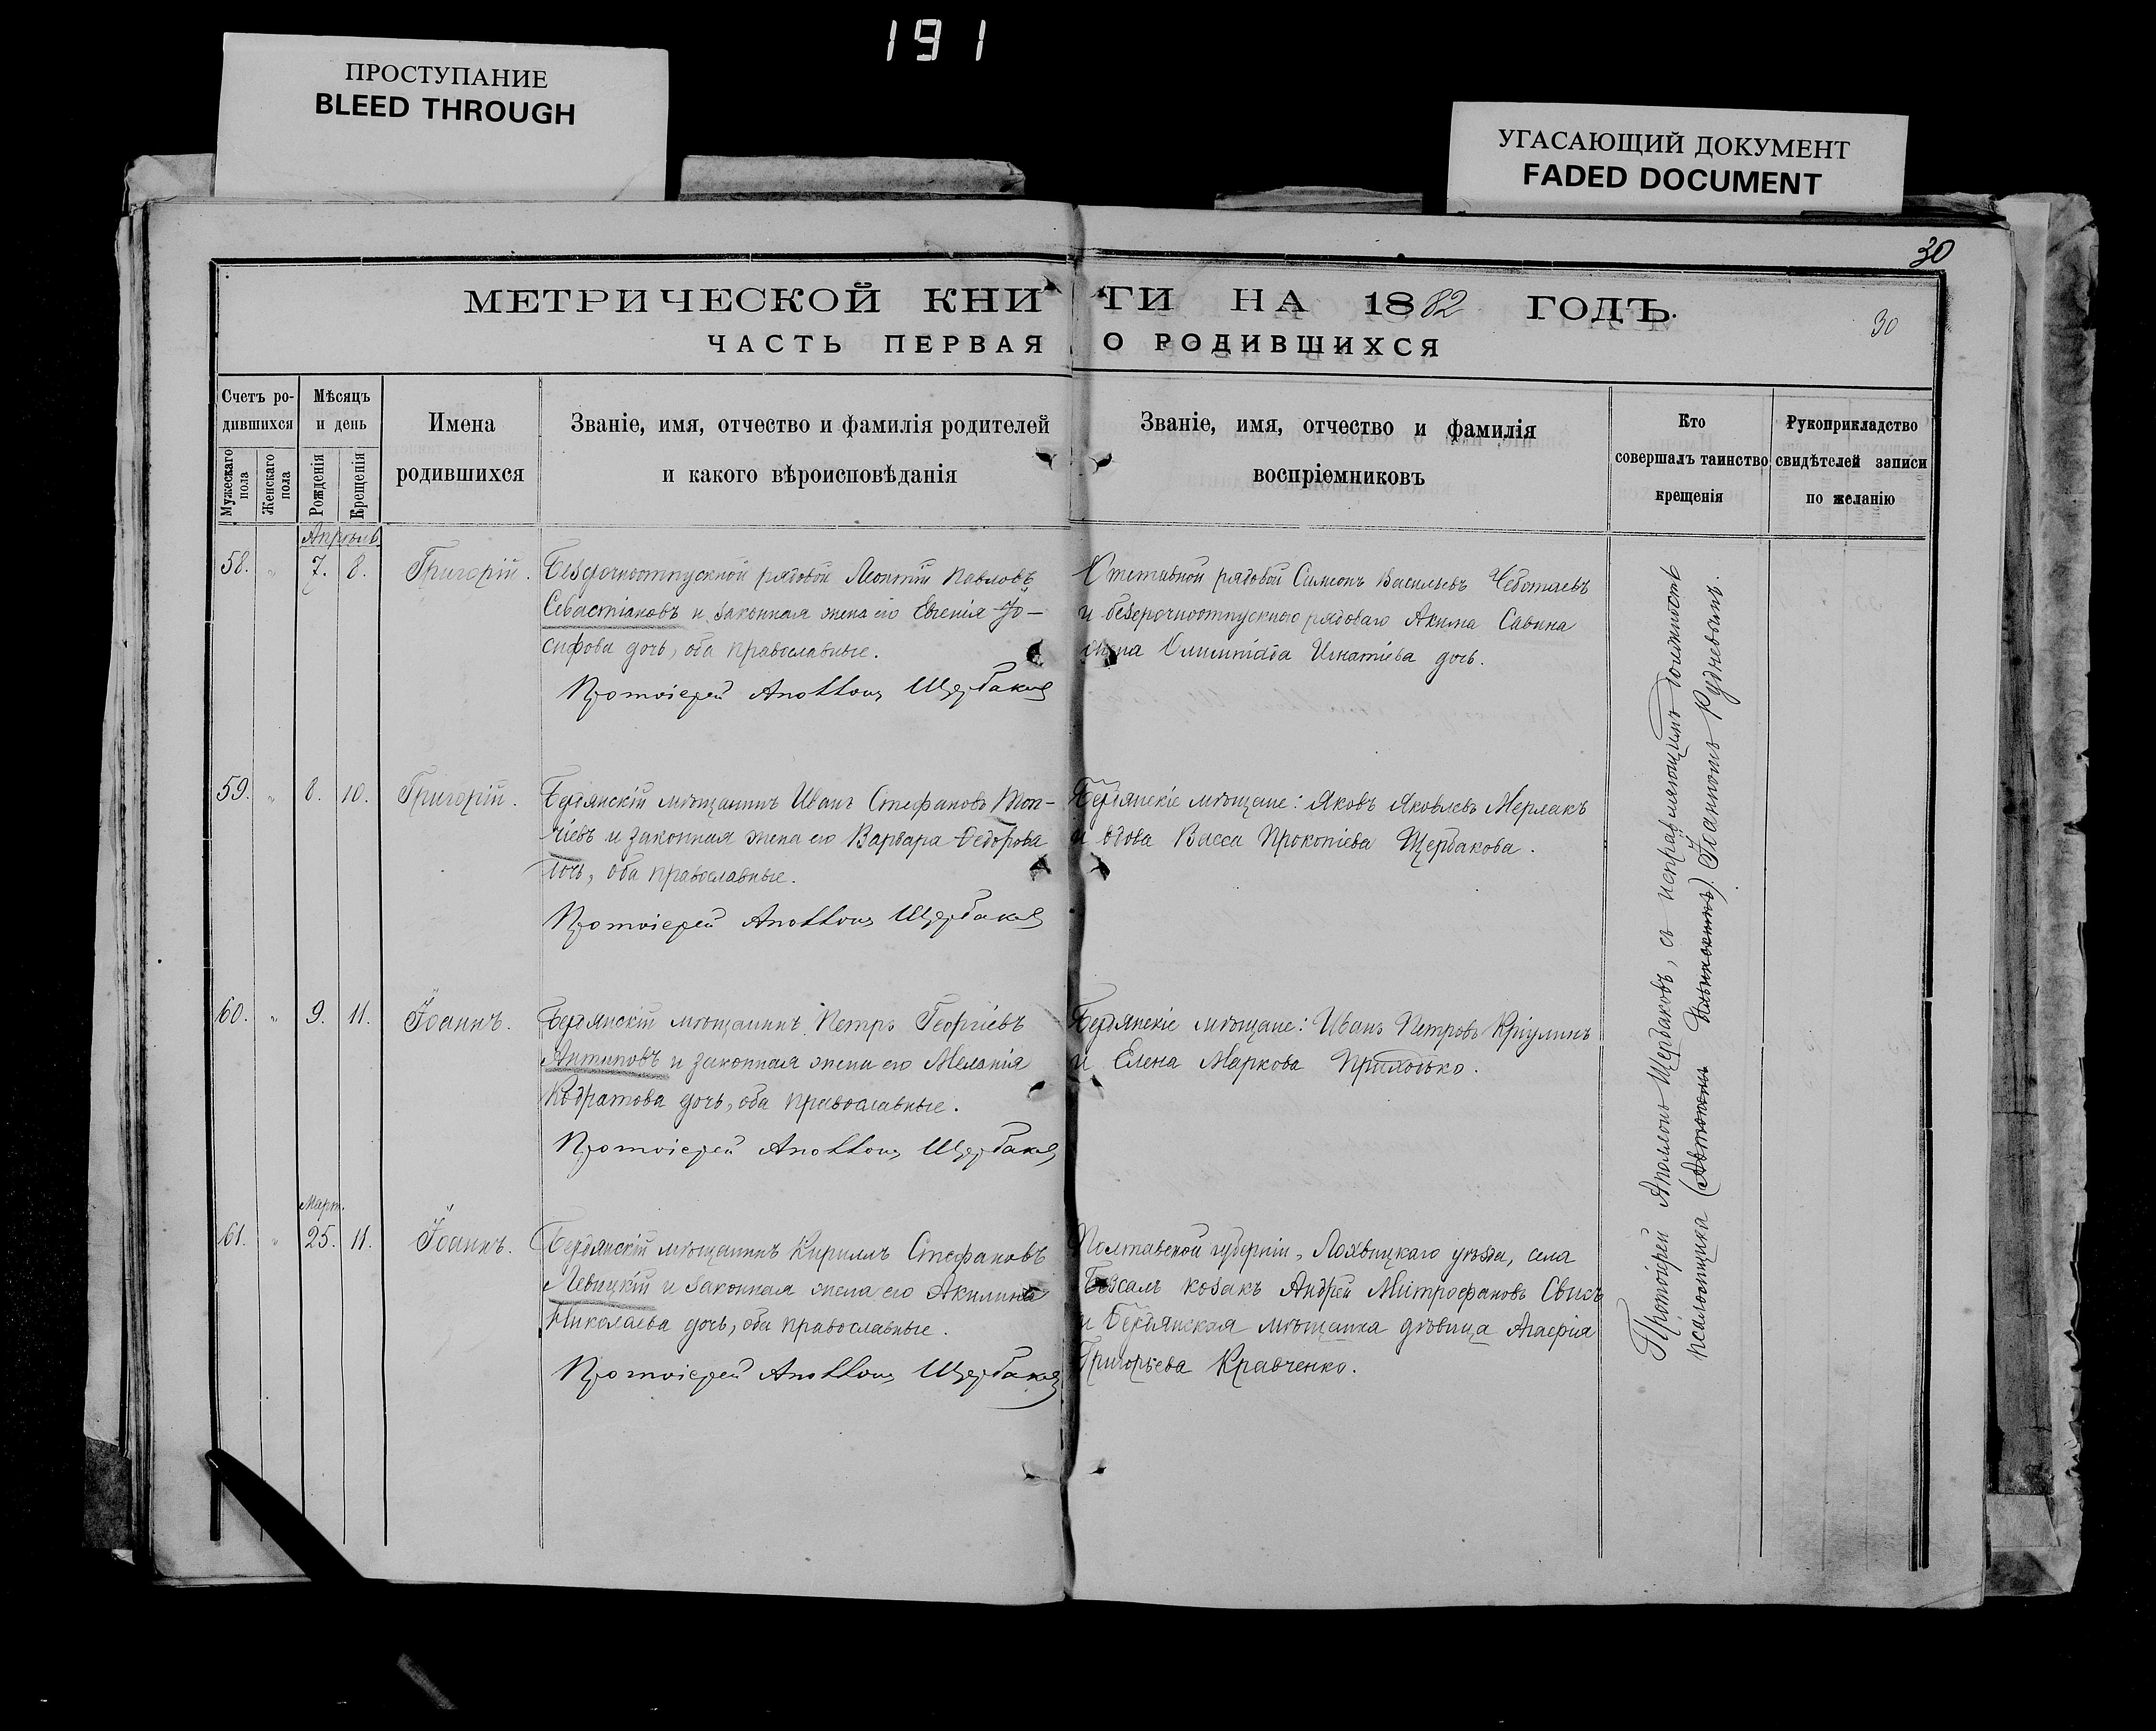 191
ПРОСТУПАНИЕ
BLEED THROUGH
УГАСАЮЩИЙ ДОКУМЕНТ
FADED DOCUMENT
30
МЕТРИЧЕСКОЙ КНИГИ НА 1882 ГОДЪ.
30
ЧАСТЬ ПЕРВАЯ О РОДИВШИХСЯ
Счетъ ро-
дившихся
Мужескаго пола
Женскаго пола
Мѣсяцъ
и день
Рожденія
Крещенія
Имена
родившихся
Званіе, имя, отчество и фамилія родителей
и какого вѣроисповѣданія
Званіе, имя, отчество и фамилія
воспріемниковъ
Кто
совершалъ таинство
крещенія
Рукоприкладство
свидѣтелей записи
по желанію
Апрѣль
58. " 7. 8. Григорій.
Безсрочноотпускной рядовой Леонтій Павловъ
Севастіановъ и законная жена его Евгенія Іо-
сифова дочь, оба православные.
Протоіерей Аполлонъ Щербаковъ
Отставной рядовой Симеонъ Васильевъ Чеботаевъ
и безсрочноотпускного рядоваго Акима Савина
жена Олимпіада Игнатіева дочь.
59. " 8. 10. Григорій.
Бердянскій мѣщанинъ Иванъ Стефановъ Топ-
чіевъ и законная жена его Варвара Ѳедорова
дочь, оба православные.
Протоіерей Аполлонъ Щербаковъ
Бердянскіе мѣщане: Яковъ Яковлевъ Мерлакъ
и вдова Васса Прокопіева Щербакова.
60. " 9. 11. Іоаннъ.
Бердянскій мѣщанинъ Петръ Георгіевъ
Антиповъ и законная жена его Меланія
Кодратова дочь, оба православные.
Протоіерей Аполлонъ Щербаковъ
Бердянскіе мѣщане: Иванъ Петровъ Кріулинъ
и Елена Маркова Приходько.
Март.
61. " 25. 11. Іоаннъ.
Бердянскій мѣщанинъ Кириллъ Стефановъ
Левицкій и законная жена его Акилина
Николаева дочь, оба православные.
Протоіерей Аполлонъ Щербаковъ
Полтавской губерніи, Лохвицкаго уѣзда, села
козакъ Андрей Митрофановъ Свисъ
и Бердянская мѣщанка дѣвица Агафія
Григорьева Кравченко.
Протоіерей Аполлонъ Щербаковъ, съ исправляющимъ должность
псаломщика Іоанномъ Рудневымъ.